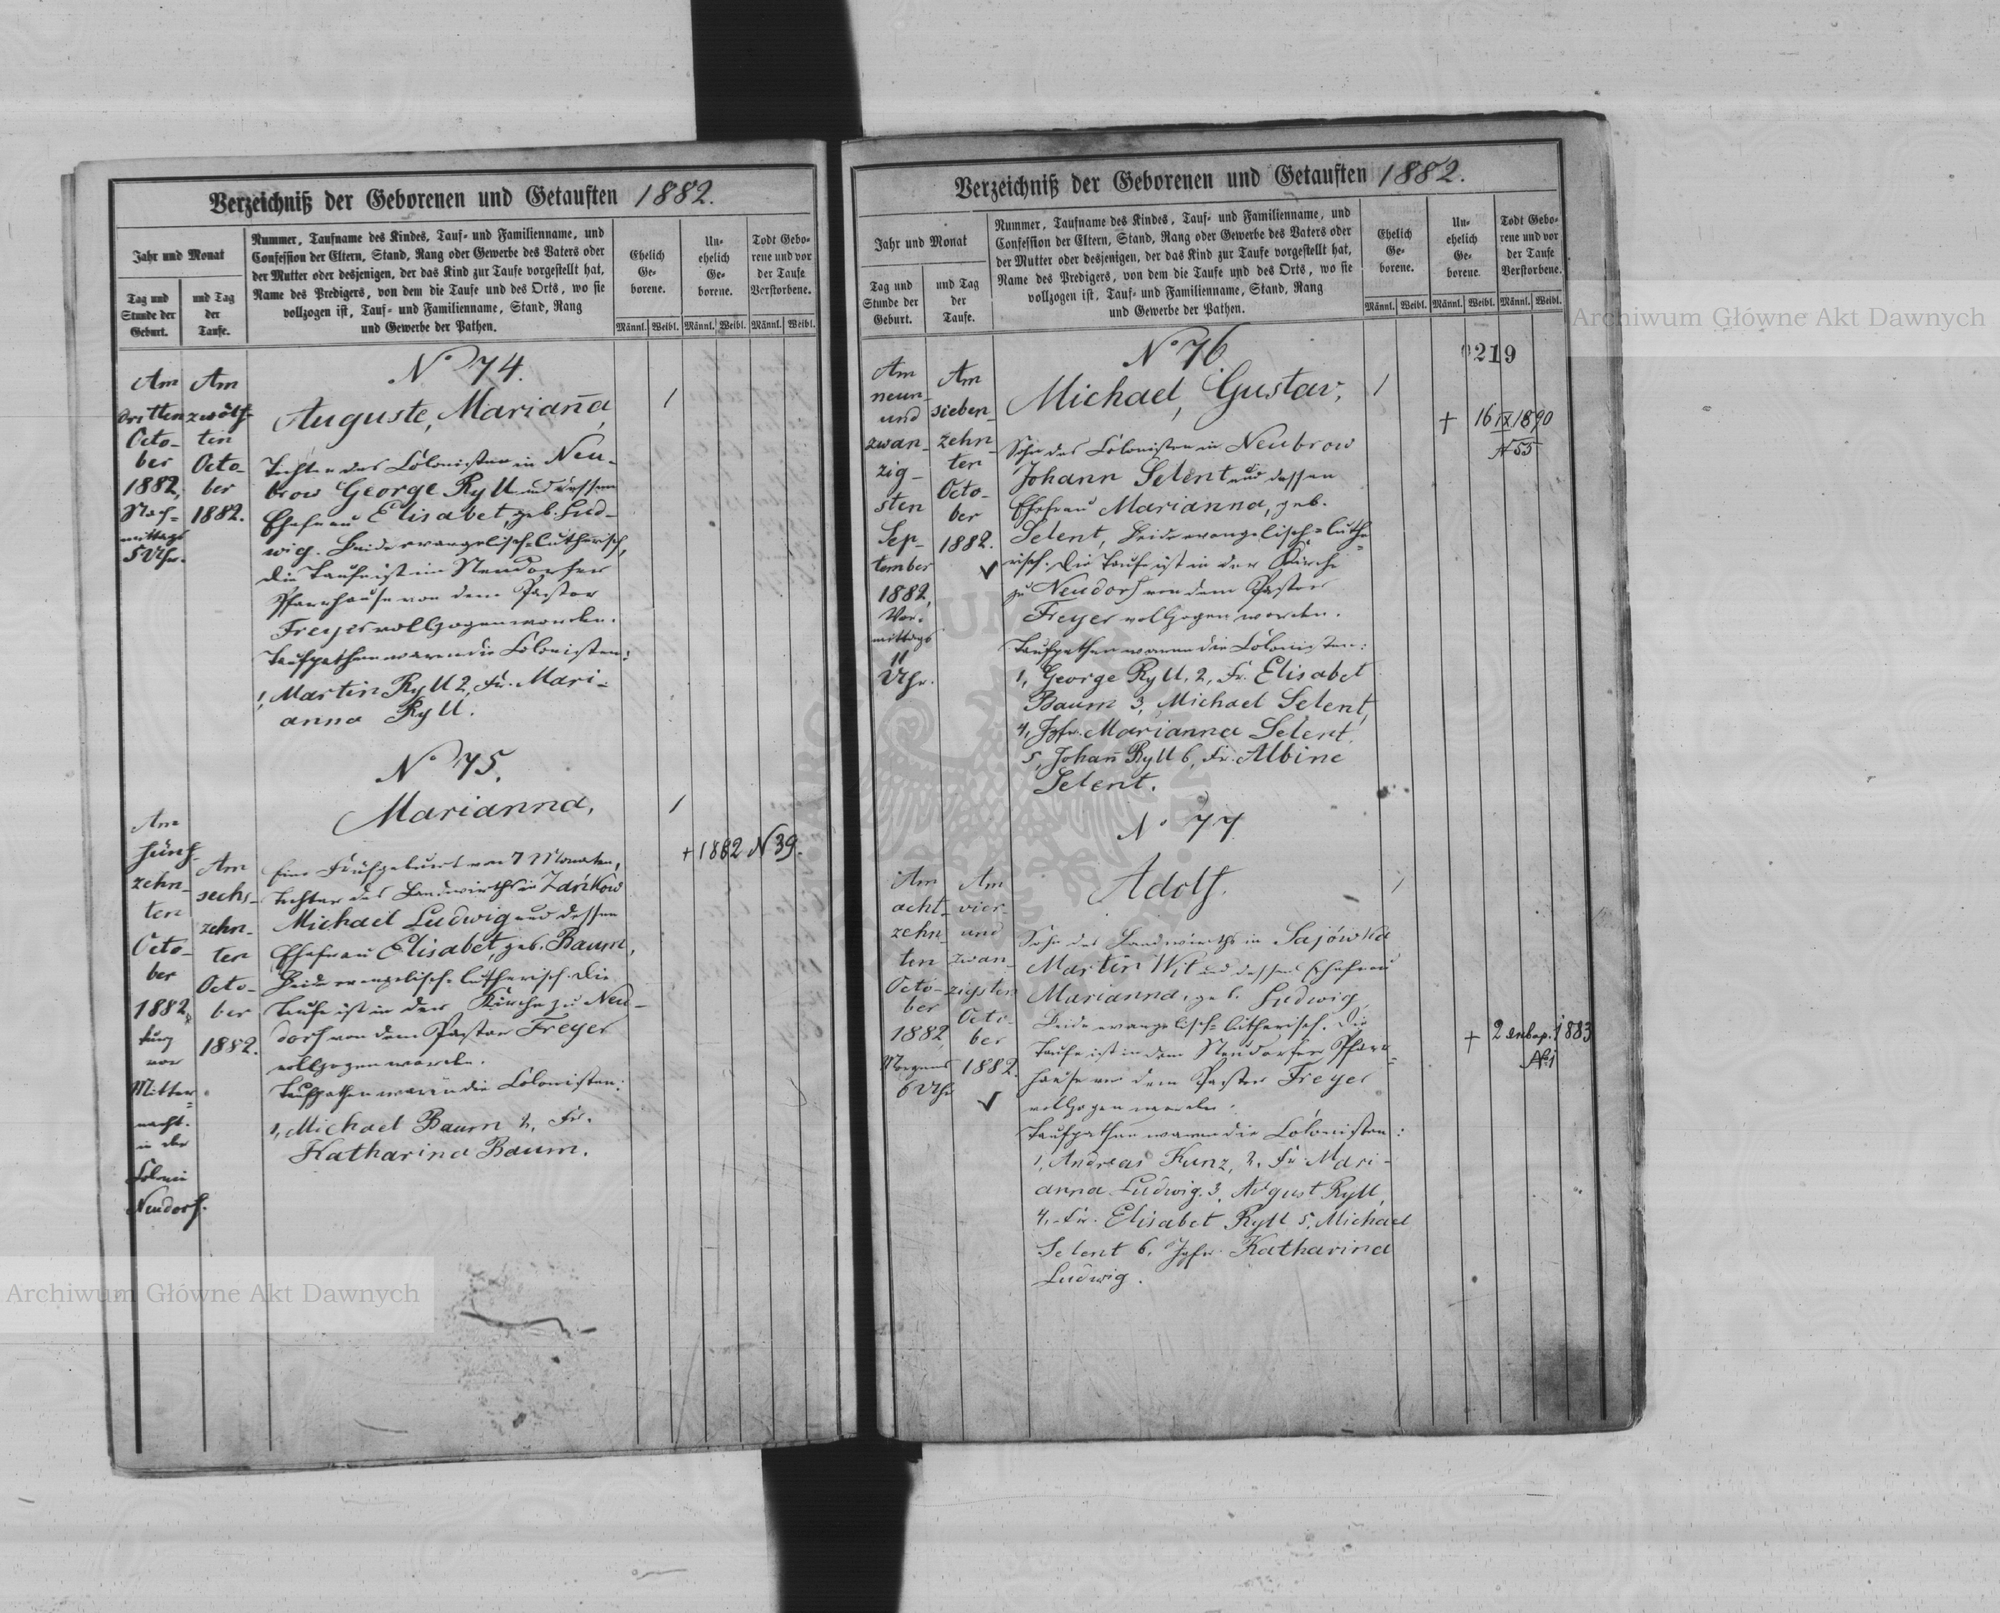 Verzeichniß der Geborenen und Getauften 1882.
Jahr und Monat
Tag und
Stunde der
Geburt.
und Tag
der
Taufe.
Nummer, Taufname des Kindes, Tauf- und Familienname, und
Confession der Eltern, Stand, Rang oder Gewerbe des Vaters oder
der Mutter oder desjenigen, der das Kind zur Taufe vorgestellt hat,
Name des Predigers, von dem die Taufe und des Orts, wo sie
vollzogen ist, Tauf- und Familienname, Stand, Rang
und Gewerbe der Pathen.
Ehelich
Ge-
borene.
Un-
ehelich
Ge-
borene.
Todt Gebo-
rene und vor
der Taufe
Verstorbene.
Männl. Weibl. Männl. Weibl. Männl. Weibl.
Am
dritten
Octo-
ber
1882,
Nach-
mittags
5 Uhr.
Am
zwölf-
ten
Octo-
ber
1882.
No 74.
Auguste, Marianna,
1
Tochter des Colonisten in Neu-
brow George Ryll und dessen
Ehefrau Elisabet, geb. Lud-
wig. Beide evangelisch-lutherisch,
die Taufe ist im Neudorfer
Pfarrhause von dem Pastor
Freyer vollzogen worden.
Taufpathen waren die Colonisten:
1, Martin Ryll 2, Fr. Mari-
anna Ryll.
No 75.
Marianna,
1
Am
fünf-
zehn-
ten
Octo-
ber
1882,
kurz
vor
Mitter-
nacht.
in der
Colonie
Neudorf.
Am
sechs-
zehn-
ten
Octo-
ber
1882.
eine Frühgeburt von 7 Monaten,
Tochter des Landwirths in Zańkow
Michael Ludwig und dessen
Ehefrau Elisabet, geb. Baum,
Beide evangelisch-lutherisch. Die
Taufe ist in der Kirche zu Neu-
dorf von dem Pastor Freyer
vollzogen worden.
Taufpathen waren die Colonisten:
1, Michael Baum 2, Fr.
Katharina Baum.
+ 1882 N 39.
Verzeichniß der Geborenen und Getauften 1882.
Jahr und Monat
Tag und
Stunde der
Geburt.
und Tag
der
Taufe.
Nummer, Taufname des Kindes, Tauf- und Familienname, und
Confession der Eltern, Stand, Rang oder Gewerbe des Vaters oder
der Mutter oder desjenigen, der das Kind zur Taufe vorgestellt hat,
Name des Predigers, von dem die Taufe und des Orts, wo sie
vollzogen ist, Tauf- und Familienname, Stand, Rang
und Gewerbe der Pathen.
Ehelich
Ge-
borene.
Un-
ehelich
Ge-
borene.
Todt Gebo-
rene und vor
der Taufe
Verstorbene.
Männl. Weibl. Männl. Weibl. Männl. Weibl.
0219
Am
neun-
und
zwan-
zig-
sten
Sep-
tember
1882,
Vor-
mittags
11
Uhr.
Am
sieben-
zehn-
ten
Octo-
ber
1882.
No 76
Michael, Gustav,
1
+ 16 IX 1890
N 55
Sohn des Colonisten in Neubrow
Johann Selent und dessen
Ehefrau Marianna, geb.
Selent, Beide evangelisch-luthe-
risch. Die Taufe ist in der Kirche
zu Neudorf von dem Pastor
Freyer vollzogen worden.
Taufpathen waren die Colonisten:
1, George Ryll, 2, Fr. Elisabet
Baum 3, Michael Selent,
4, Jgfr. Marianna Selent.
5, Johann Ryll 6, Fr. Albine
Selent.
No 77
Adolf.
1
Am
acht-
zehn-
ten
Octo-
ber
1882
Morgens
6 Uhr
Am
vier-
und
zwan-
zigsten
Octo-
ber
1882.
Sohn des Landwirths in Sajówka
Martin Wit und dessen Ehefrau
Marianna, geb. Ludwig,
Beide evangelisch-lutherisch. Die
Taufe ist in dem Neudorfer Pfarr-
hause von dem Pastor Freyer
vollzogen worden.
Taufpathen waren die Colonisten:
1, Andreas Kunz, 2, Fr. Mari-
anna Ludwig. 3, August Ryll,
4, Fr. Elisabet Ryll 5, Michael
Selent 6, Jgfr. Katharina
Ludwig.
+ 2 Январ. 1883
№1
Archiwum Główne Akt Dawnych
Archiwum Główne Akt Dawnych